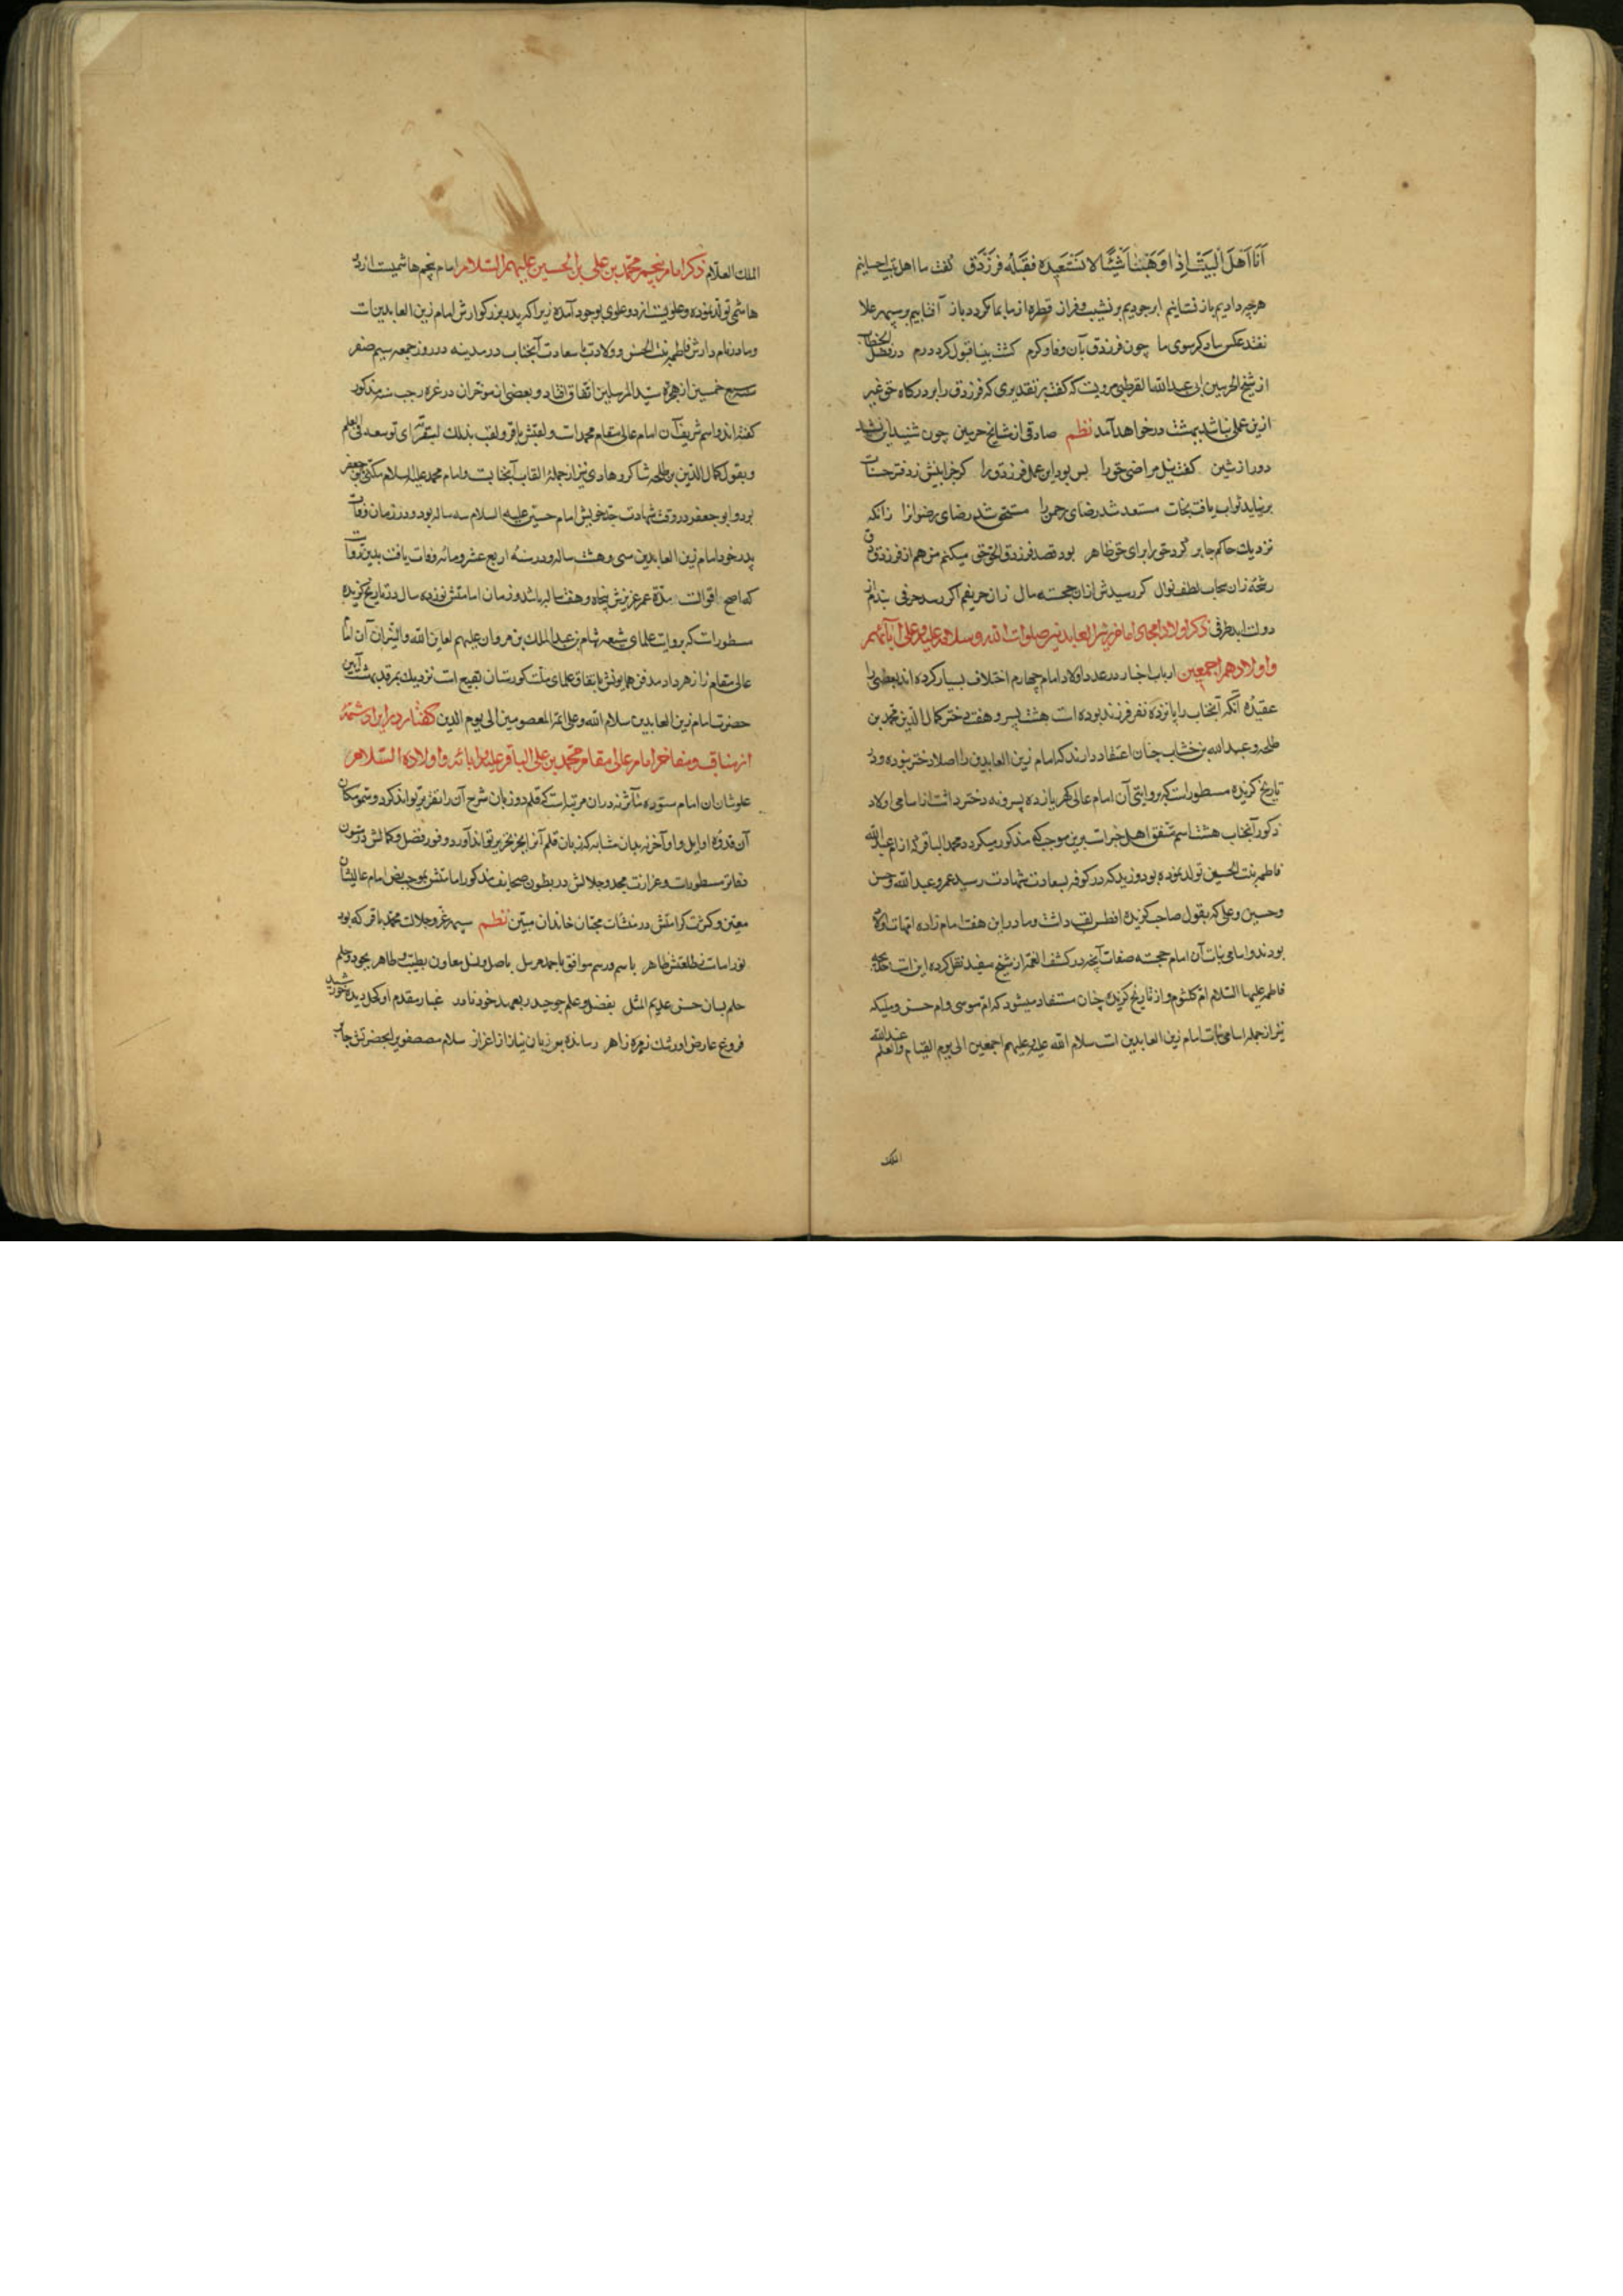 اَنَا اَهْلَ الْبَيْتِ اِذا وَهَبْنا شَيْئًا لا نَسْتَعيده فقبله فَرَزْدَق گفت ما اهل بیت احسانیم
هرچه دادیم باز نستانیم ابر جودیم بر نشیب و فراز قطره از ما بما نکردد باز آفتابیم بر سپهر علا
نفتد عکس ما دکر سوی ما چون فرزدق بآن وفا و کرم کشت بینا قبول کرد درم
از شیخ الحرمین ابی عبدالله القرطبی مرویست که گفت بر تقدیری که فرزدق را بر درکاه حق غیر
ازین عمل نباشد ببهشت درخواهد آمد نظم صادقی از مشایخ حرمین چون شنید این نشید
دور از شین گفت نیل مراضی حق را بس بود این عمل فرزدق را کر جز اینش ز دفتر حسنات
برنیاید ثواب یافت نجات مستعد شد رضای رحمن را مستحق شد ریاض رضوان را زانکه
نزدیک حاکم جابر کرد حق را برای حق ظاهر
رشحه زان سحاب لطف نوال کر رسیدش ازان خجسته مال زان حریفم اکر رسد حرفی بندم از
دولت ابد طرفی ذکر اولاد امجاد امام زین العابدین صلوات الله و سلامه علیه و علی آبائهم
و اولادهم اجمعین ارباب اخبار در عدد اولاد امام چهارم اختلاف بسیار کرده اند بعضی را
عقیده آنکه آنجناب را پانزده نفر فرزند بوده است هشت پسر و هفت دختر کمال الدین محمد بن
طلحه و عبدالله بن خشاب چنان اعتقاد دارند که امام زین العابدین را اصلا دختر نبوده و در
تاریخ کزیده مسطور است که بروایتی آن امام عالی کهر یازده پسر و نه دختر داشت اما اسامی اولاد
ذکور آنجناب هشت اسم متفق اهل خبر است برین موجب که مذکور میکردد محمد الباقر که از ام عبدالله
فاطمه بنت الحسن تولد نموده بود و زید که در کوفه بسعادت شهادت رسید عمر و عبدالله و حسن
و حسین و علی که بقول صاحب کزیده افطس لقب داشت و مادر این هفت امام زاده امهات اولاد
بودند و اسامی بنات آن امام خجسته صفات آنچه در کشف الغمه از شیخ مفید نقل کرده این است خدیجه
فاطمه علیها السلام ام کلثوم و از تاریخ کزیده چنان مستفاد میشود که ام موسی و ام حسن و ملیکه
نیز از جمله اسامی بنات امام زین العابدین است سلام الله علیه و علیهم اجمعین الی یوم القیام والعلم عندالله
الملک
الملك العلام ذکر امام پنجم محمد بن علی بن الحسین علیهم السلام امام پنجم هاشمیست از دو
هاشمی تولد نموده و علویست از دو علوی بوجود آمده زیرا که پدر بزرکوارش امام زین العابدین است
و مادر نامدارش فاطمه بنت الحسن و ولادت با سعادت آنجناب در مدینه در روز جمعه سیم صفر
سنه سبع خمسین از هجرة سید المرسلین اتفاق افتاد و بعضی از مؤرخان در غره رجب سنه مذکور
کفته اند و اسم شریف آن امام عالی مقام محمد است و لقبش باقر و لقب بذلک لبقره ای توسعه فی العلم
و بقول کمال الدین بن طلحه شاکر و هادی نیز از جمله القاب آنجناب است و امام محمد علیه السلام مکنی بابی جعفر
بود و ابو جعفر در وقت شهادت جد خویش امام حسین علیه السلام سه ساله بود و در زمان وفات
پدر خود امام زین العابدین سی و هشت ساله و در سنه اربع عشر و مائه وفات یافت
که اصح اقوالست مدة عمر عزیزش پنجاه و هفت سال باشد و زمان امامتش نوزده سال در تاریخ کزیده
مسطور است که بروایت علمای شیعه هشام بن عبدالملک بن مروان علیهم لعاین الله والنیران آن امام
عالی مقام را زهر داد مدفن همایونش باتفاق علمای ملت کورستان بقیع است نزدیک بمرقد بهشت آیین
حضرت امام زین العابدین سلام الله و علی ائمة المعصومین الی یوم الدین گفتار در ایراد شمه
از مناقب و مفاخر امام عالی مقام محمد بن علی الباقر علیه و آبائه و اولاده السلام
علو شان آن امام ستوده مآثر نه دران مرتبه است که قلم دو زبان شرح آن را تقریر تواند کرد و سمو مکان
آن قدوه اوایل و اواخر نه بدان مثابه که زبان قلم آنرا بحیز تحریر تواند آورد و وفور فضل و کمالش در متون
دفاتر مسطور است و غزارت مجد و جلالش در بطون صحایف مذکور امامتش بموجب نص امام عالیشان
معین و کثرت کرامتش در منشآت محبان خاندان مبین نظم سپهر عز و جلالت محمد باقر که بود
نور امامت ز طلعتش ظاهر باسم و رسم موافق باحمد مرسل باصل و نسل معاون بطیب و طاهر بجود و حلم
حلم بسان حسن عدیم المثل بفضل و علم چو حیدر بعهد خود نادر غبار مقدم او کحل دیده خورشید
فروغ عارض او رشک زهره زاهر رسانده بر زبان نیاز از اعزاز سلام مصطفوی را بحضرتش جابر